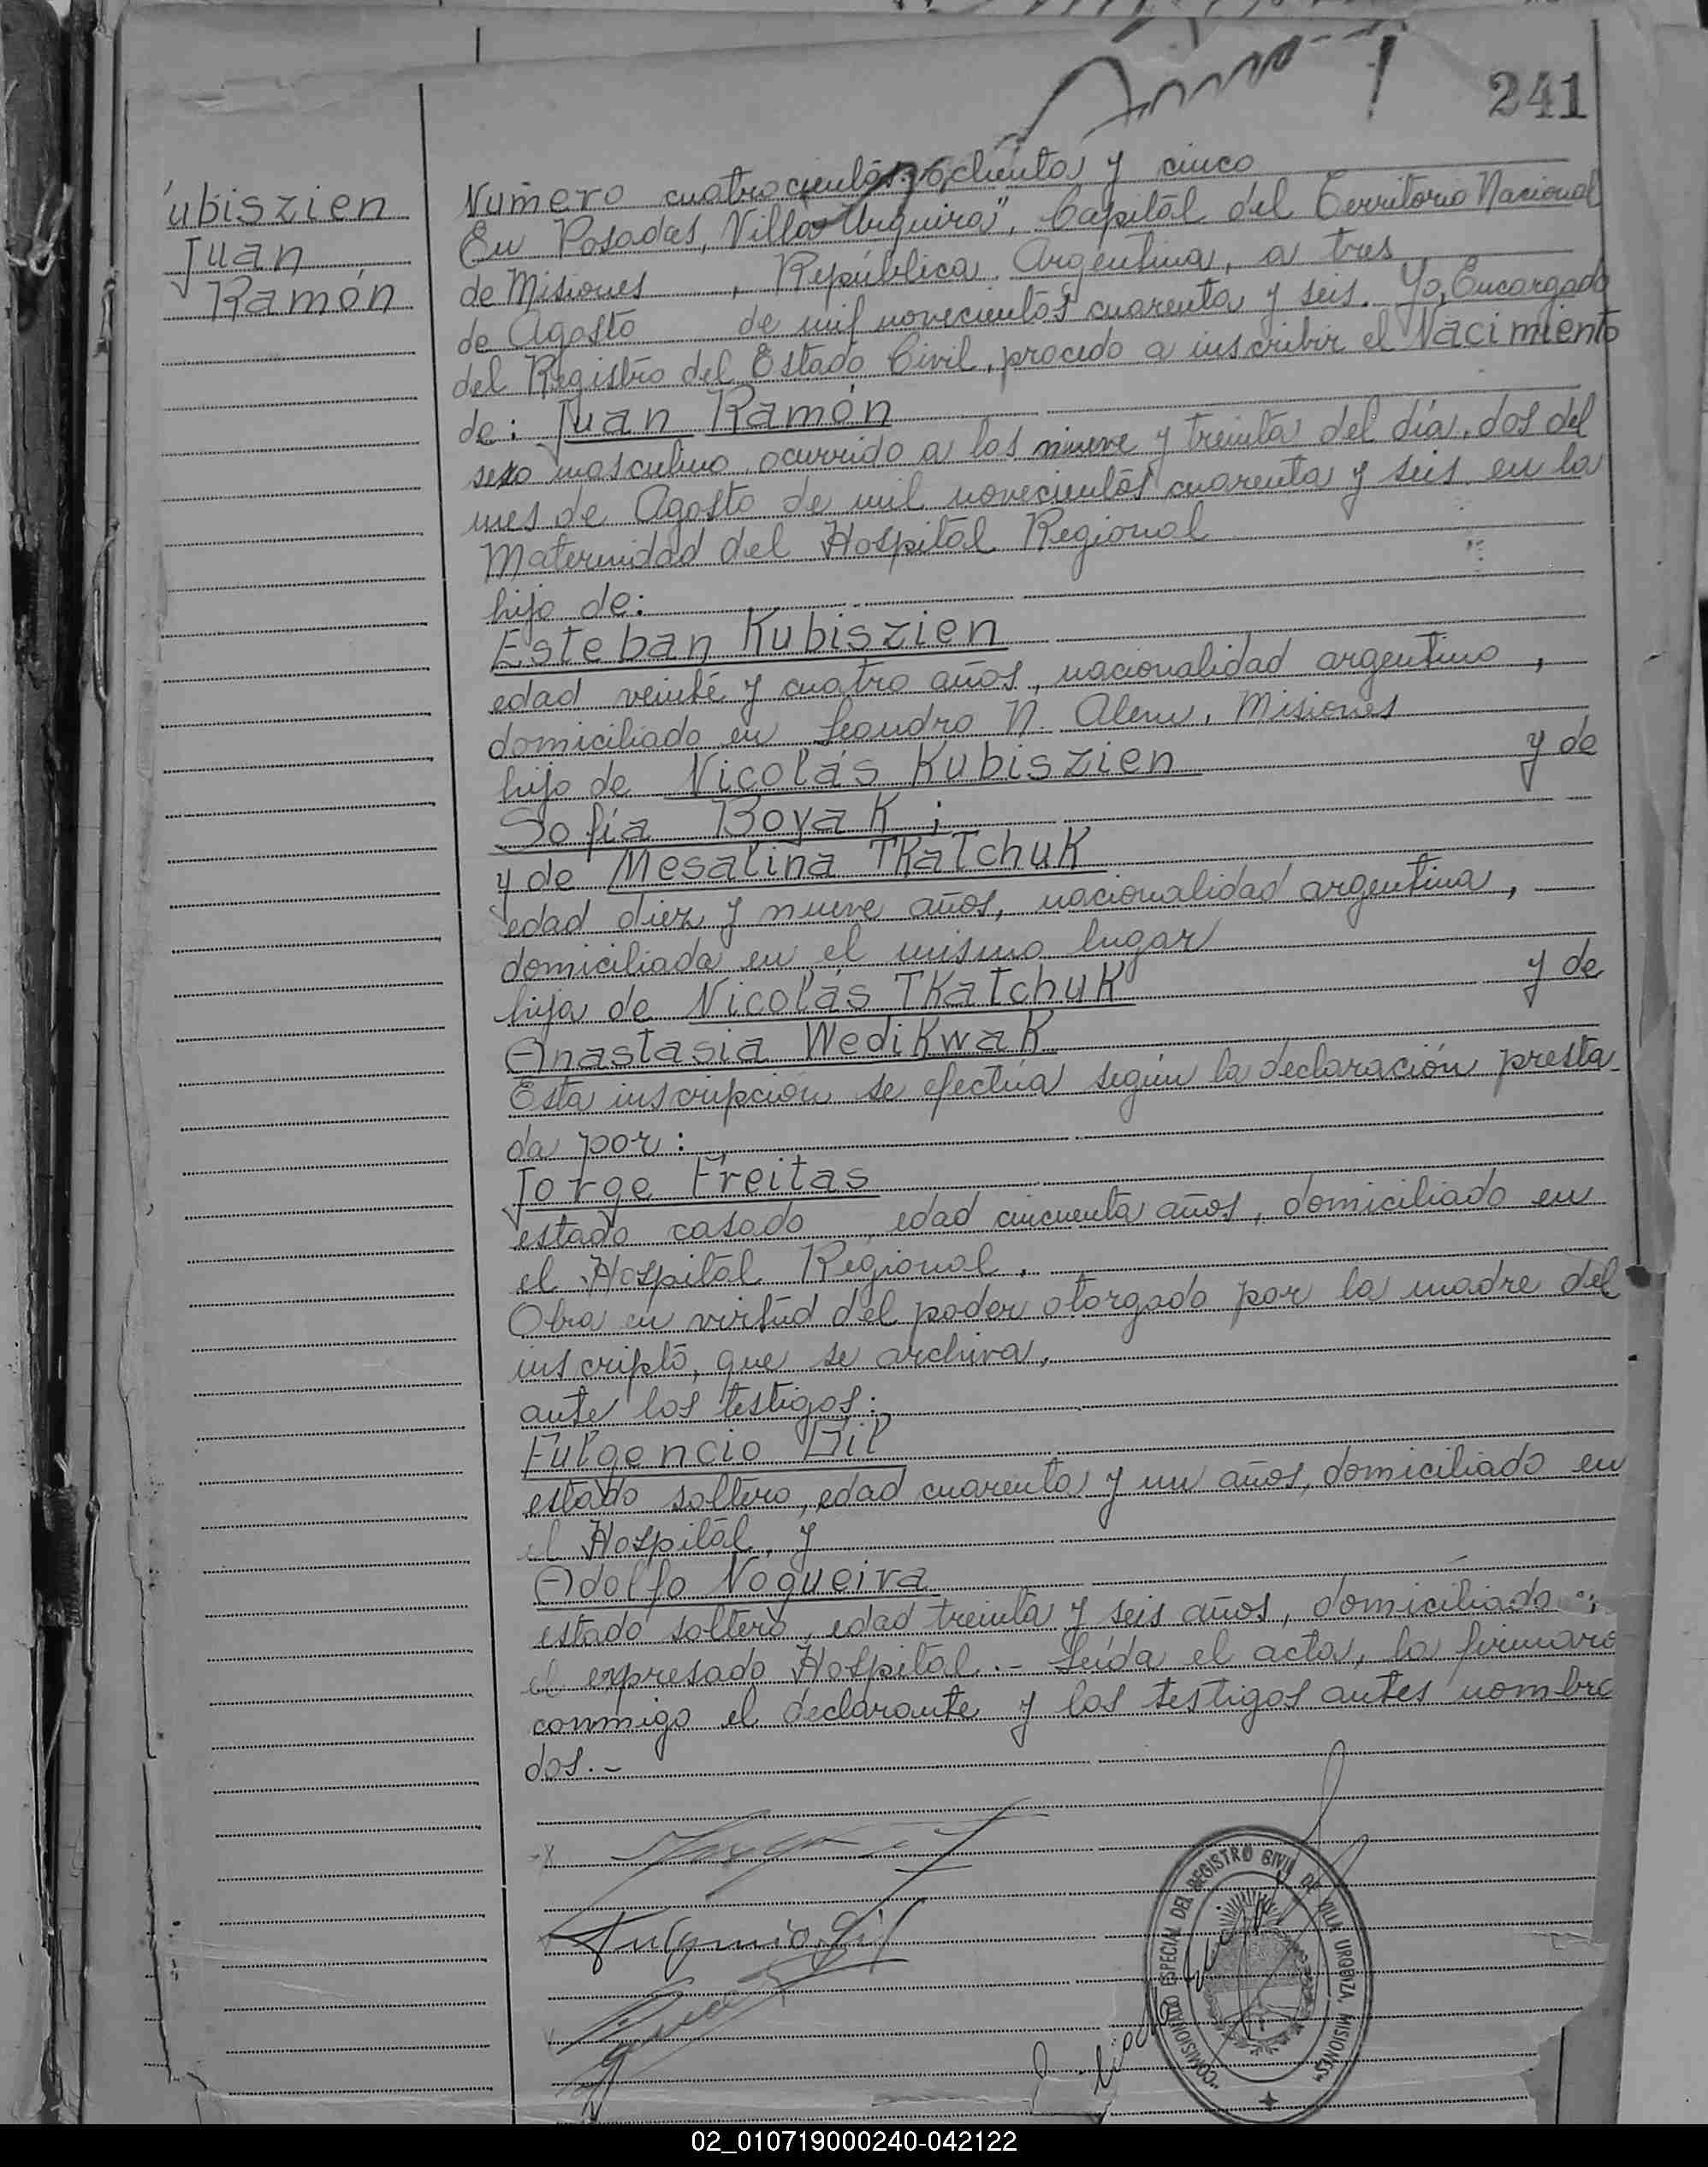 241
ubiszien
Juan
Ramón
Número cuatrocientos ochenta y cinco
En Posadas, Villa Urquiza", Capital del Territorio Nacional
de Misiones, República Argentina, a tres
de Agosto de mil novecientos cuarenta y seis. Yo, Encargado
del Registro del Estado Civil, procedo a inscribir el Nacimiento
de: Juan Ramón
sexo masculino ocurrido a las nueve y treinta del día, dos del
mes de Agosto de mil novecientos cuarenta y seis en la
Maternidad del Hospital Regional
hijo de:
Esteban Kubiszien
edad veinte y cuatro años, nacionalidad argentino,
domiciliado en Leandro N. Alem, Misiones
hijo de Nicolás Kubiszien y de
Sofía Boyak;
y de Mesalina Tkatchuk
edad diez y nueve años, nacionalidad argentina,
domiciliada en el mismo lugar
hija de Nicolás Tkatchuk y de
Anastasia Wedikwak
Esta inscripción se efectúa según la declaración presta-
da por:
Jorge Freitas
estado casado, edad cincuenta años, domiciliado en
el Hospital Regional.
Obra en virtud del poder otorgado por la madre del
inscripto, que se archiva,
ante los testigos:
Fulgencio Gil
estado soltero, edad cuarenta y un años, domiciliado en
el Hospital, y
Adolfo Nogueira
estado soltero, edad treinta y seis años, domiciliado
el expresado Hospital.- Leída el acta, la firmaro
conmigo el declarante y los testigos antes nombra
dos.-
Fulgencio Gil
"COMISIONADO ESPECIAL DEL REGISTRO CIVIL DE VILLA URQUIZA, MISIONES"
02_010719000240-042122